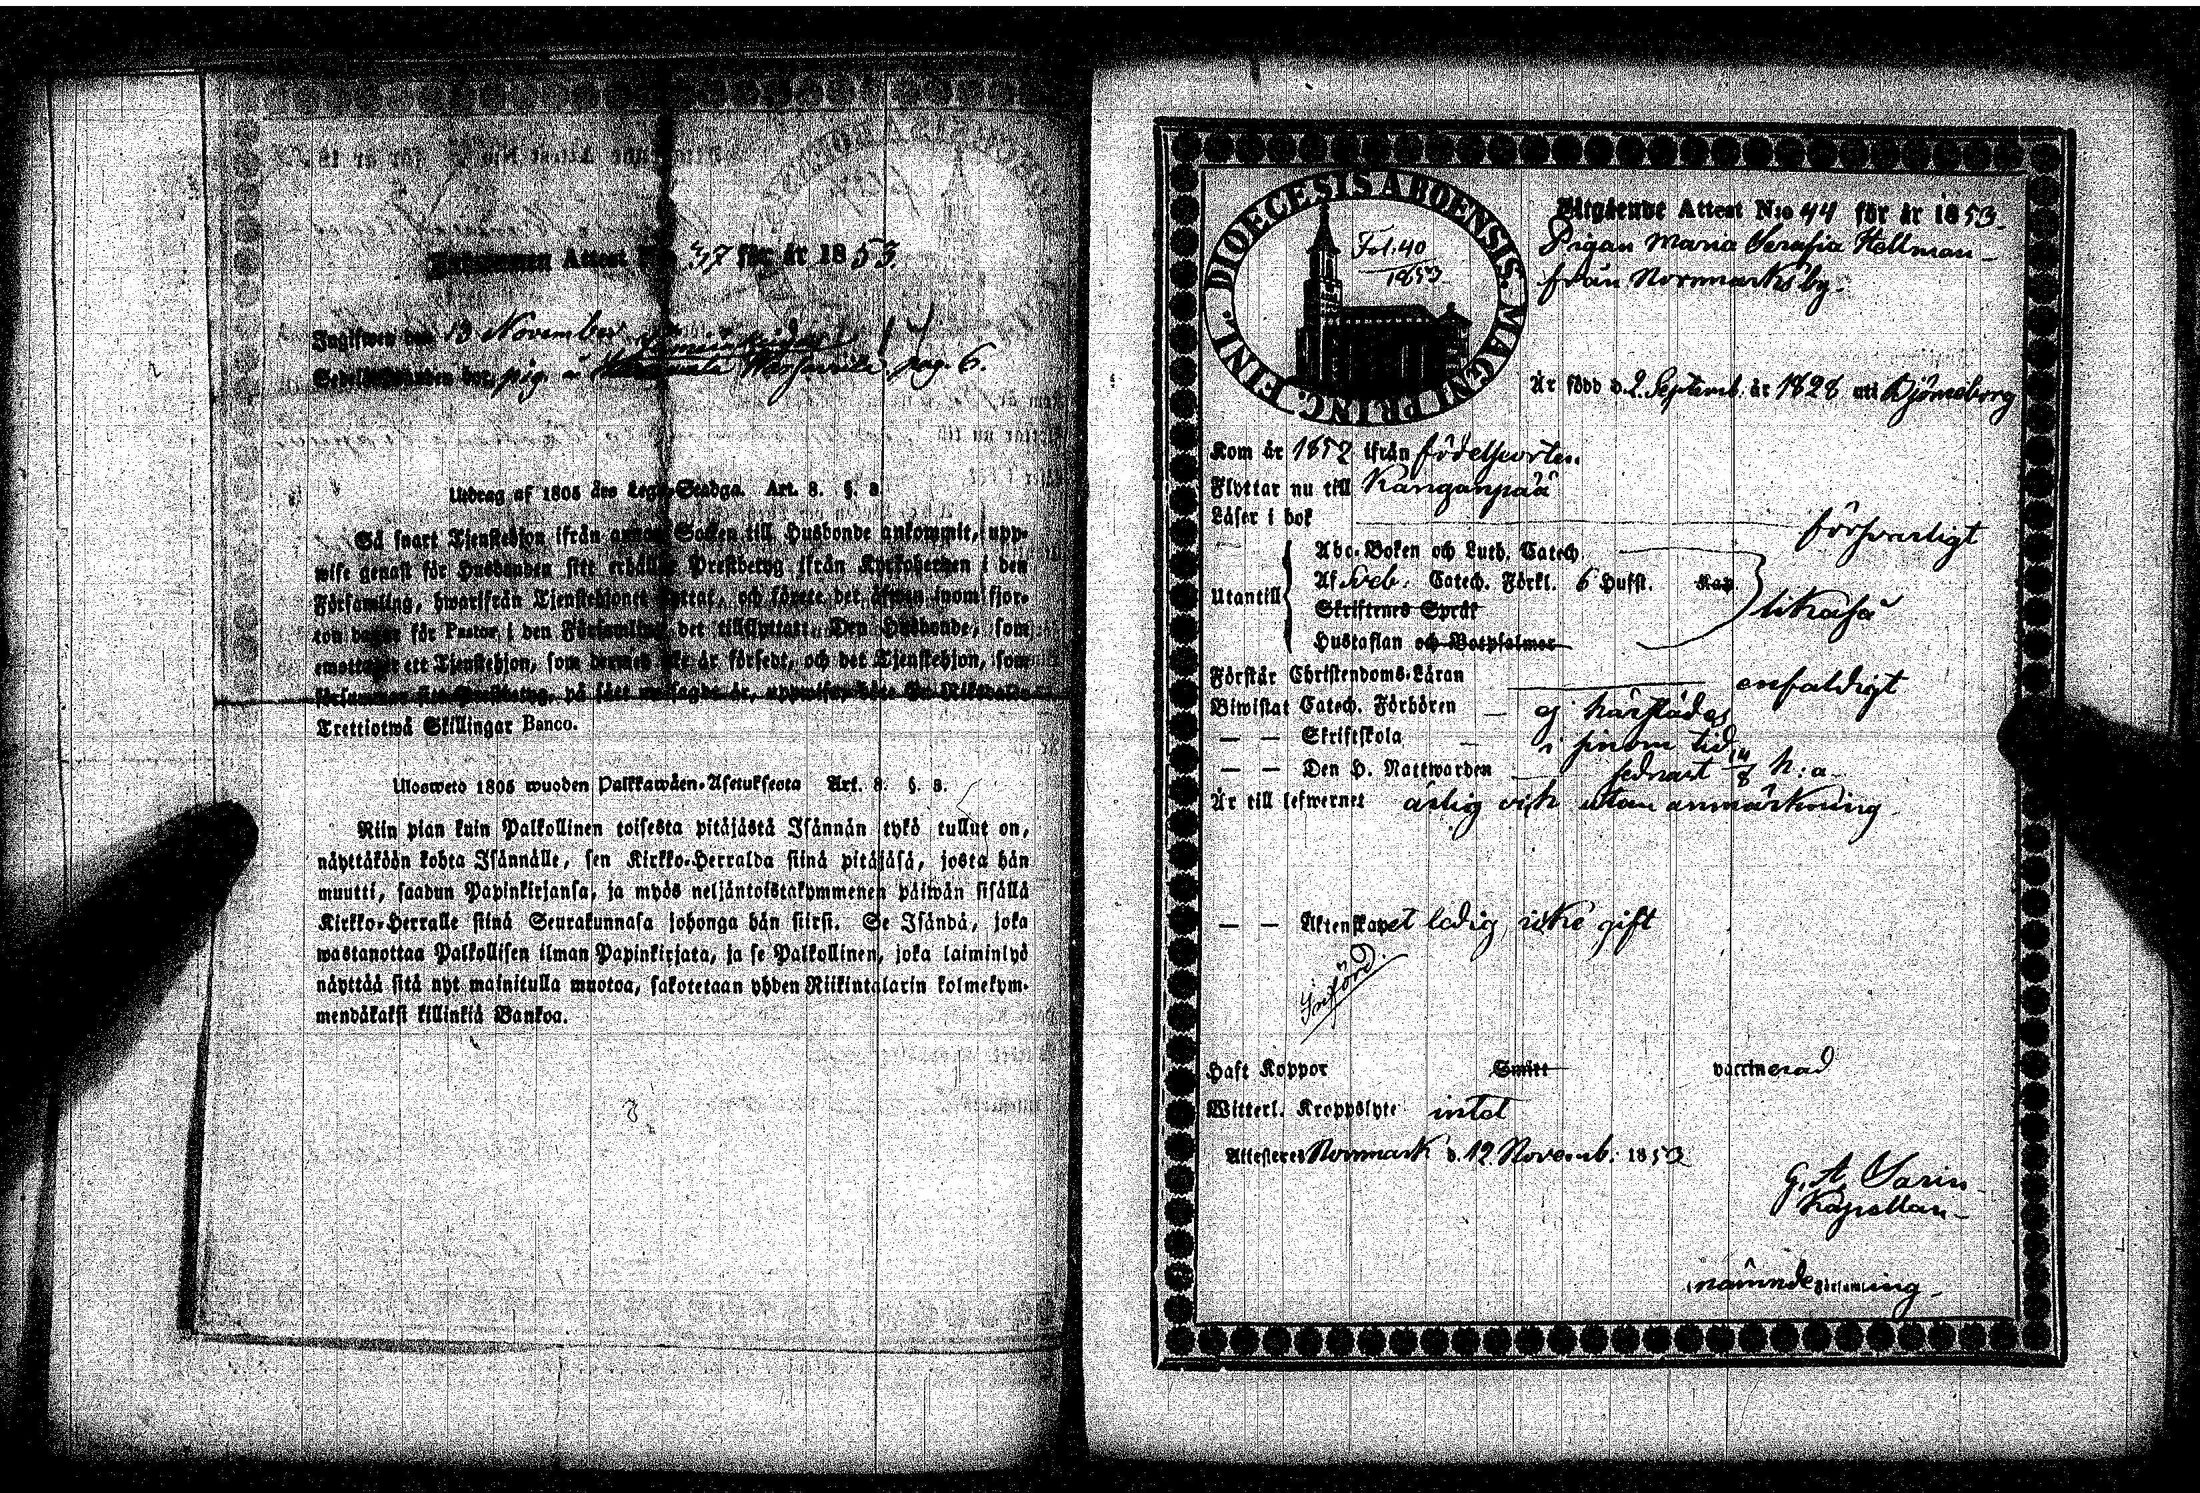 Attest N:o 37 för år 1853.
Ingifwen den 13 November
pig. à pag. 6.
Utdrag af 1805 års Lego-Stadga. Art. 8. §. 3.
Så snart Tjenstehjon ifrån annan Socken till Husbonde ankommit, upp-
wise genast för Husbonden sitt erhållne Prestbetyg ifrån Kyrkoherden i den
Församling, hwarifrån Tjenstehjonet flyttat, och förete det äfwen inom fjor-
ton dagar för Pastor i den Församling det tillflyttat. Den Husbonde, som
emottager ett Tjenstehjon, som dermed icke är försedt, och det Tjenstehjon, som
försummar sitt Prestbetyg, på sätt nu sagdt är, uppwisa, böte En Riksdaler
Trettiotwå Skillingar Banco.
Ulosweto 1805 wuoden Palkkawäen-Asetuksesta Art. 8. §. 3.
Niin pian kuin Palkollinen toisesta pitäjästä Isännän tykö tullut on,
näyttäköön kohta Isännälle, sen Kirkko-Herralda siinä pitäjäsä, josta hän
muutti, saadun Papinkirjansa, ja myös neljäntoistakymmenen päiwän sisällä
Kirkko-Herralle siinä Seurakunnasa johonga hän siirsi. Se Isändä, joka
wastanottaa Palkollisen ilman Papinkirjata, ja se Palkollinen, joka laiminlyö
näyttää sitä nyt mainitulla muotoa, sakotetaan yhden Riikintalarin kolmekym-
mendäkaksi killinkiä Bankoa.
DIOECESIS ABOENSIS. MAGNI PRINC. FINL.
Fol. 40
1853
Utgående Attest N:o 44 för år 1853.
Pigan Maria Serafia Hellman
från Norrmarks by.
Är född d. 2 Septemb. år 1828 uti Björneborg
Kom år 1852 ifrån födelseorten.
Flyttar nu till Kanganpää
Läser i bok försvarligt
Utantill
Abc-Boken och Luth. Catech.
Af Sveb. Catech. Förkl. 6 Hufst. Kap.
Skriftenes Språk
Hustaflan och Botpsalmer
likaså
Förstår Christendoms-Läran enfaldigt
Biwistat Catech. Förhören ej härstädes
— — Skriftskola i sinom tid
— — Den H. Nattwarden sednast 14/8 h: a.
Är till lefwernet ärlig och utan anmärkning
— — Äktenskapet ledig, icke gift
Införd.
Haft Koppor Smitt vaccinerad
Witterl. Kroppslyte intet
Attesteras Norrmark d. 12 Novemb. 1853
G. A. Sarin
Kapellan
i nämnde Församling.